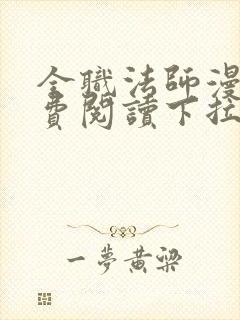 全職法師漫
費閱讀下拉
一夢黄梁